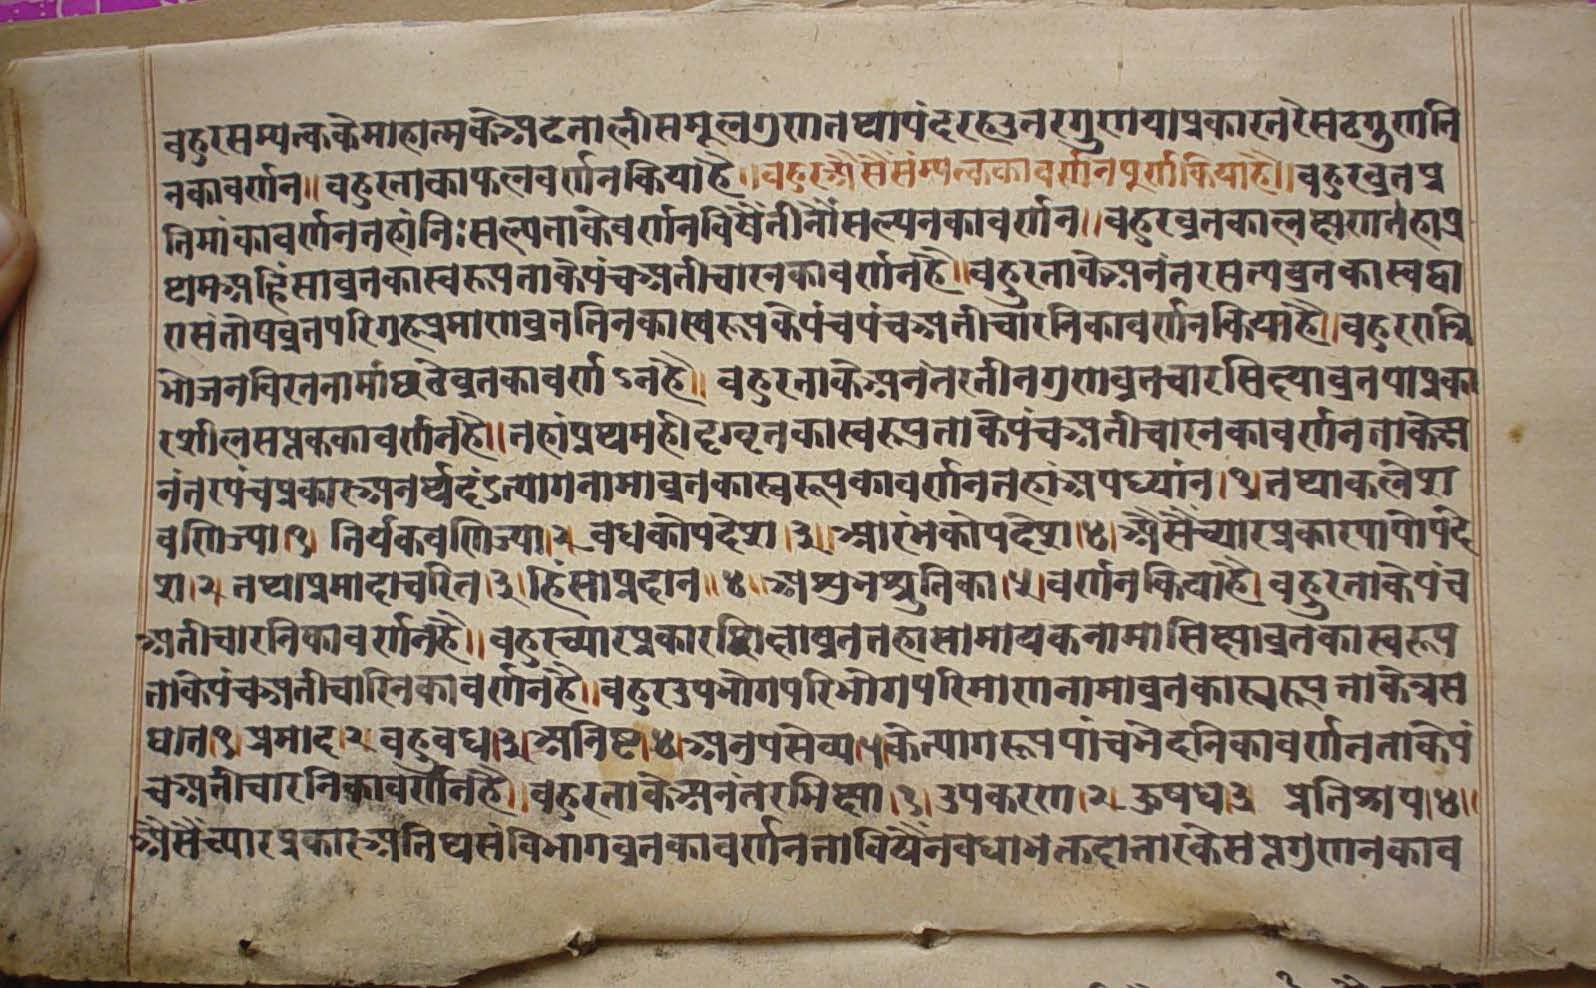 बहुरसम्यत्ककैमाहात्मकैअटतालीसमूलगुणातथापंदरहउतरगुणयाप्रकारतरैसटगुणानि
नकावर्णन॥ बहुरताकाफलवर्णनकियाहै॥ बहुरअैसैसंम्यत्ककावर्णनपूर्णकियाहै॥ बहुरव्रतप्र
तिमांकावर्णनतहांनिःसल्यताकैवर्णनविषैंतीनौंसल्यनकावर्णन॥ बहुरव्रतकालक्षणतहाप्र
थमअहिंसाव्रतकास्वरूपताकैपंचअतीचारनकावर्णनहै॥ बहुरताकैअनंतरसत्यव्रतकास्वदा
रासंतोषव्रतपरिग्रहप्रमाणव्रततिनकास्वरूपकैपंचपंचअतीचारनिकावर्णनकियाहै॥ बहुररात्रि
भोजनविरतनामांछठेव्रतकावर्णाऽनहै॥ बहुरताकैअनंतरतीनगुणव्रतचारसिक्षाव्रतयाप्रका
रशीलसप्तककावर्णनहै॥ तहांप्रथमही दृग्व्रतकास्वरूपताकैपंचअतीचारनकावर्णनताकैअ
नंतरपंचप्रकारअनर्थदंऽत्यागनामाव्रतकास्वरूपकावर्णनतहांअपध्यांन।१। तथाकलेश
वणिज्या।१। तिर्यकवणिज्या।२। बधकोपदेश।३। आरंभकोपदेश।४। अैसैंच्यारप्रकारपापोपदे
श।२। तथाप्रमादाचरित।३। हिंसाप्रदान॥४॥ अाशुभश्रुतिका।५। वर्णनकियाहै। बहुरताकैपंच
अतीचारनिकावर्णनहै॥ बहुरच्यारप्रकारशिक्षाव्रततहासामायकनामासिक्षाव्रतकास्वरूप
ताकैपंचअतीचारनिकावर्णनहै॥ बहुरउपभोगपरिभोगपरिमाणनामाव्रतकास्वरूपताकैत्रस
घात।१। प्रमाद।२। बहुबध।३। अनिष्ट।४। अनुपसेव्य।५। केत्यागरूपपांचभेदनिकावर्णनताकैपं
चअतीचारनिकावर्णनहै॥ बहुरताकैअनंतरभिक्षा।१। उपकरण।२। ऊषध।३ प्रतिश्रय।४॥
अैसैंच्यारप्रकारअतिथसंविभागव्रतकावर्णनताविषैंनवधाभक्तदातारकेसप्तगुणनकाव